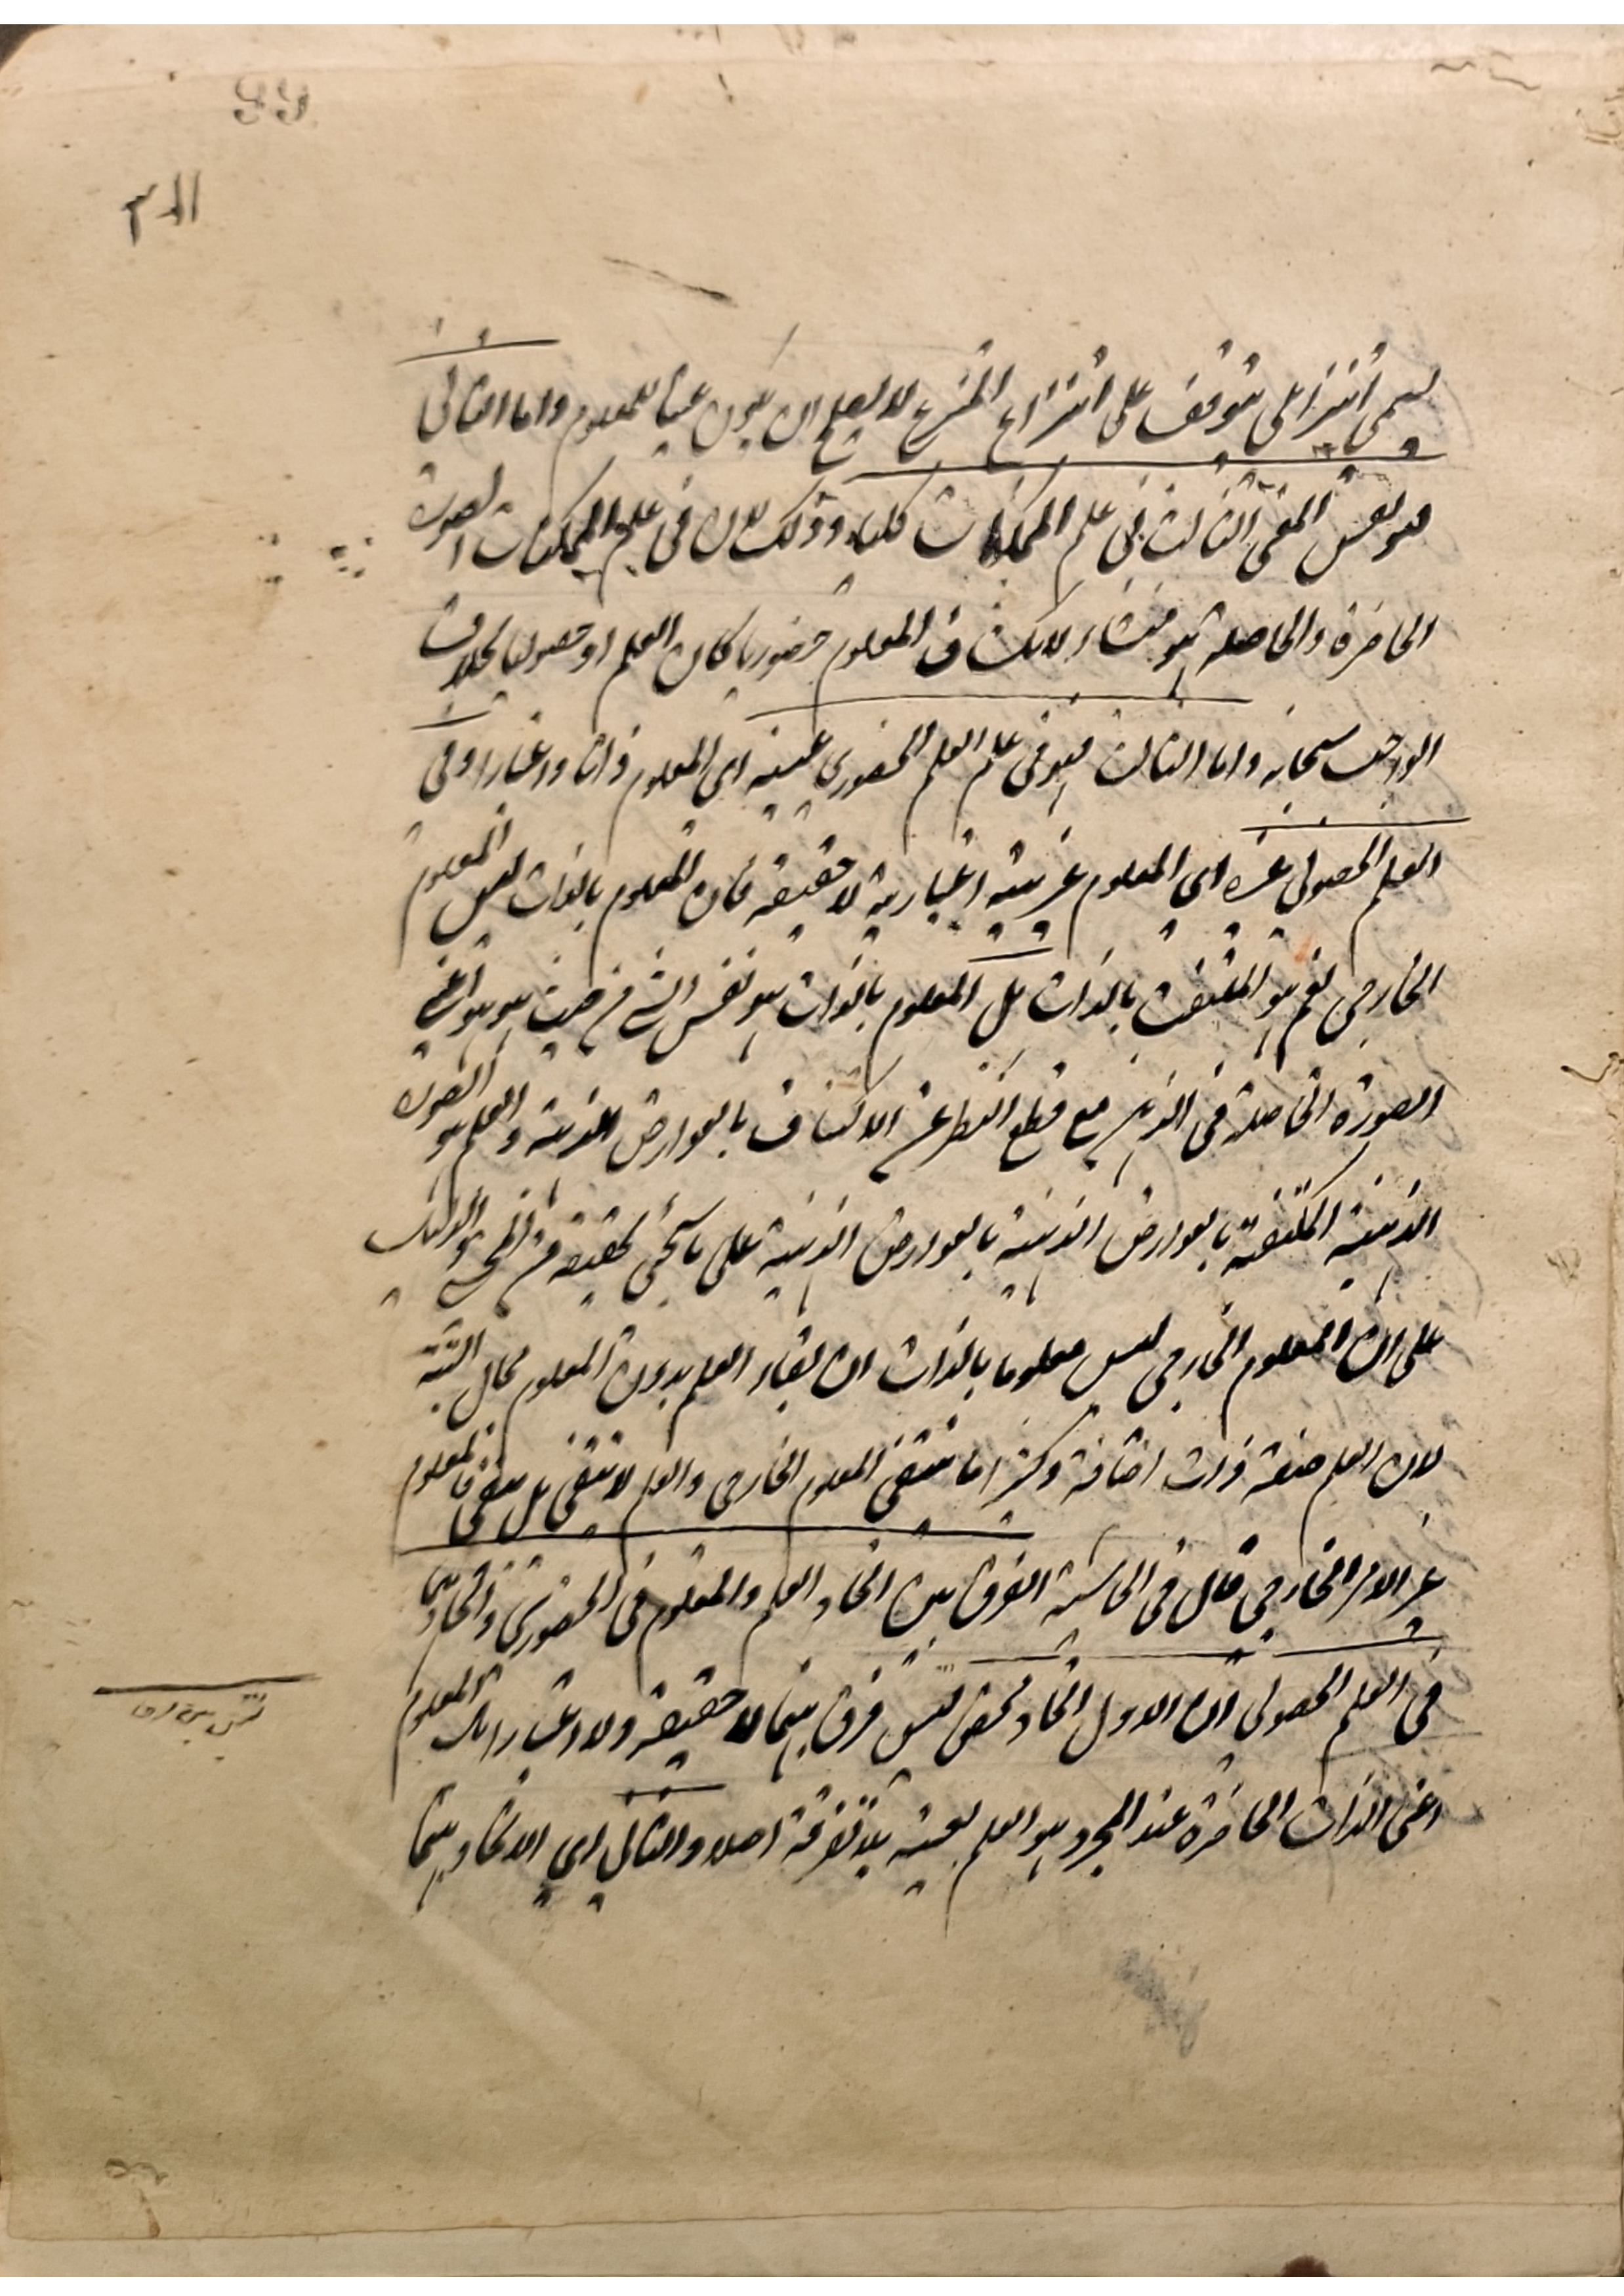 انتزاعي يتوقف على انتزاع المنتزع لا يصلح ان يكون عينا للمعلوم واما الثاني
فهو نفس المعنى الثالث في علم الممكنات كلها وذلك لان في علم الممكنات الصورة
الحاضرة والحاصلة هو منشاء لانكشاف المعلوم حضوريا كان العلم او حصوليا بخلاف
الواجب سبحانه واما الثالث فهو في علم العلم الحضوري عينه اى المعلوم ذاتا واعتبارا وفي
العلم الحصولي غيره اى المعلوم غيرية اعتبارية لا حقيقة فان المعلوم بالذات ليس المعلوم
الخارجي نعم هو الملتفت بالذات بل المعلوم بالذات هو نفس الشيء من حيث هو هو اعني
الصورة الحاصلة في الذهن مع قطع النظر عن الاكتناف بالعوارض الذهنية والعلم هو الصورة
الذهنية المكتنفة بالعوارض الذهنية بالعوارض الذهنية على ما سيجيء تحقيقه من المحشي والدليل
على ان المعلوم الخارجي ليس معلوما بالذات ان بقاء العلم بدون المعلوم محال البتة
لان العلم صفة ذات اضافة وكثيرا ما ينتفي المعلوم الخارجي والعلم لا ينتفي بل يبقى فالمعلوم
غير الامر الخارجي قال في الحاشية الفرق بين اتحاد العلم والمعلوم في الحضوري واتحادهما
في العلم الحصولي ان الاول اتحاد محض ليس فرق بينهما لا حقيقة ولا اعتبارا بل المعلوم
اعني الذات الحاضرة عند المجرد هو العلم بعينه بلا تفرقة اصلا والثاني اى الاتحاد بينهما